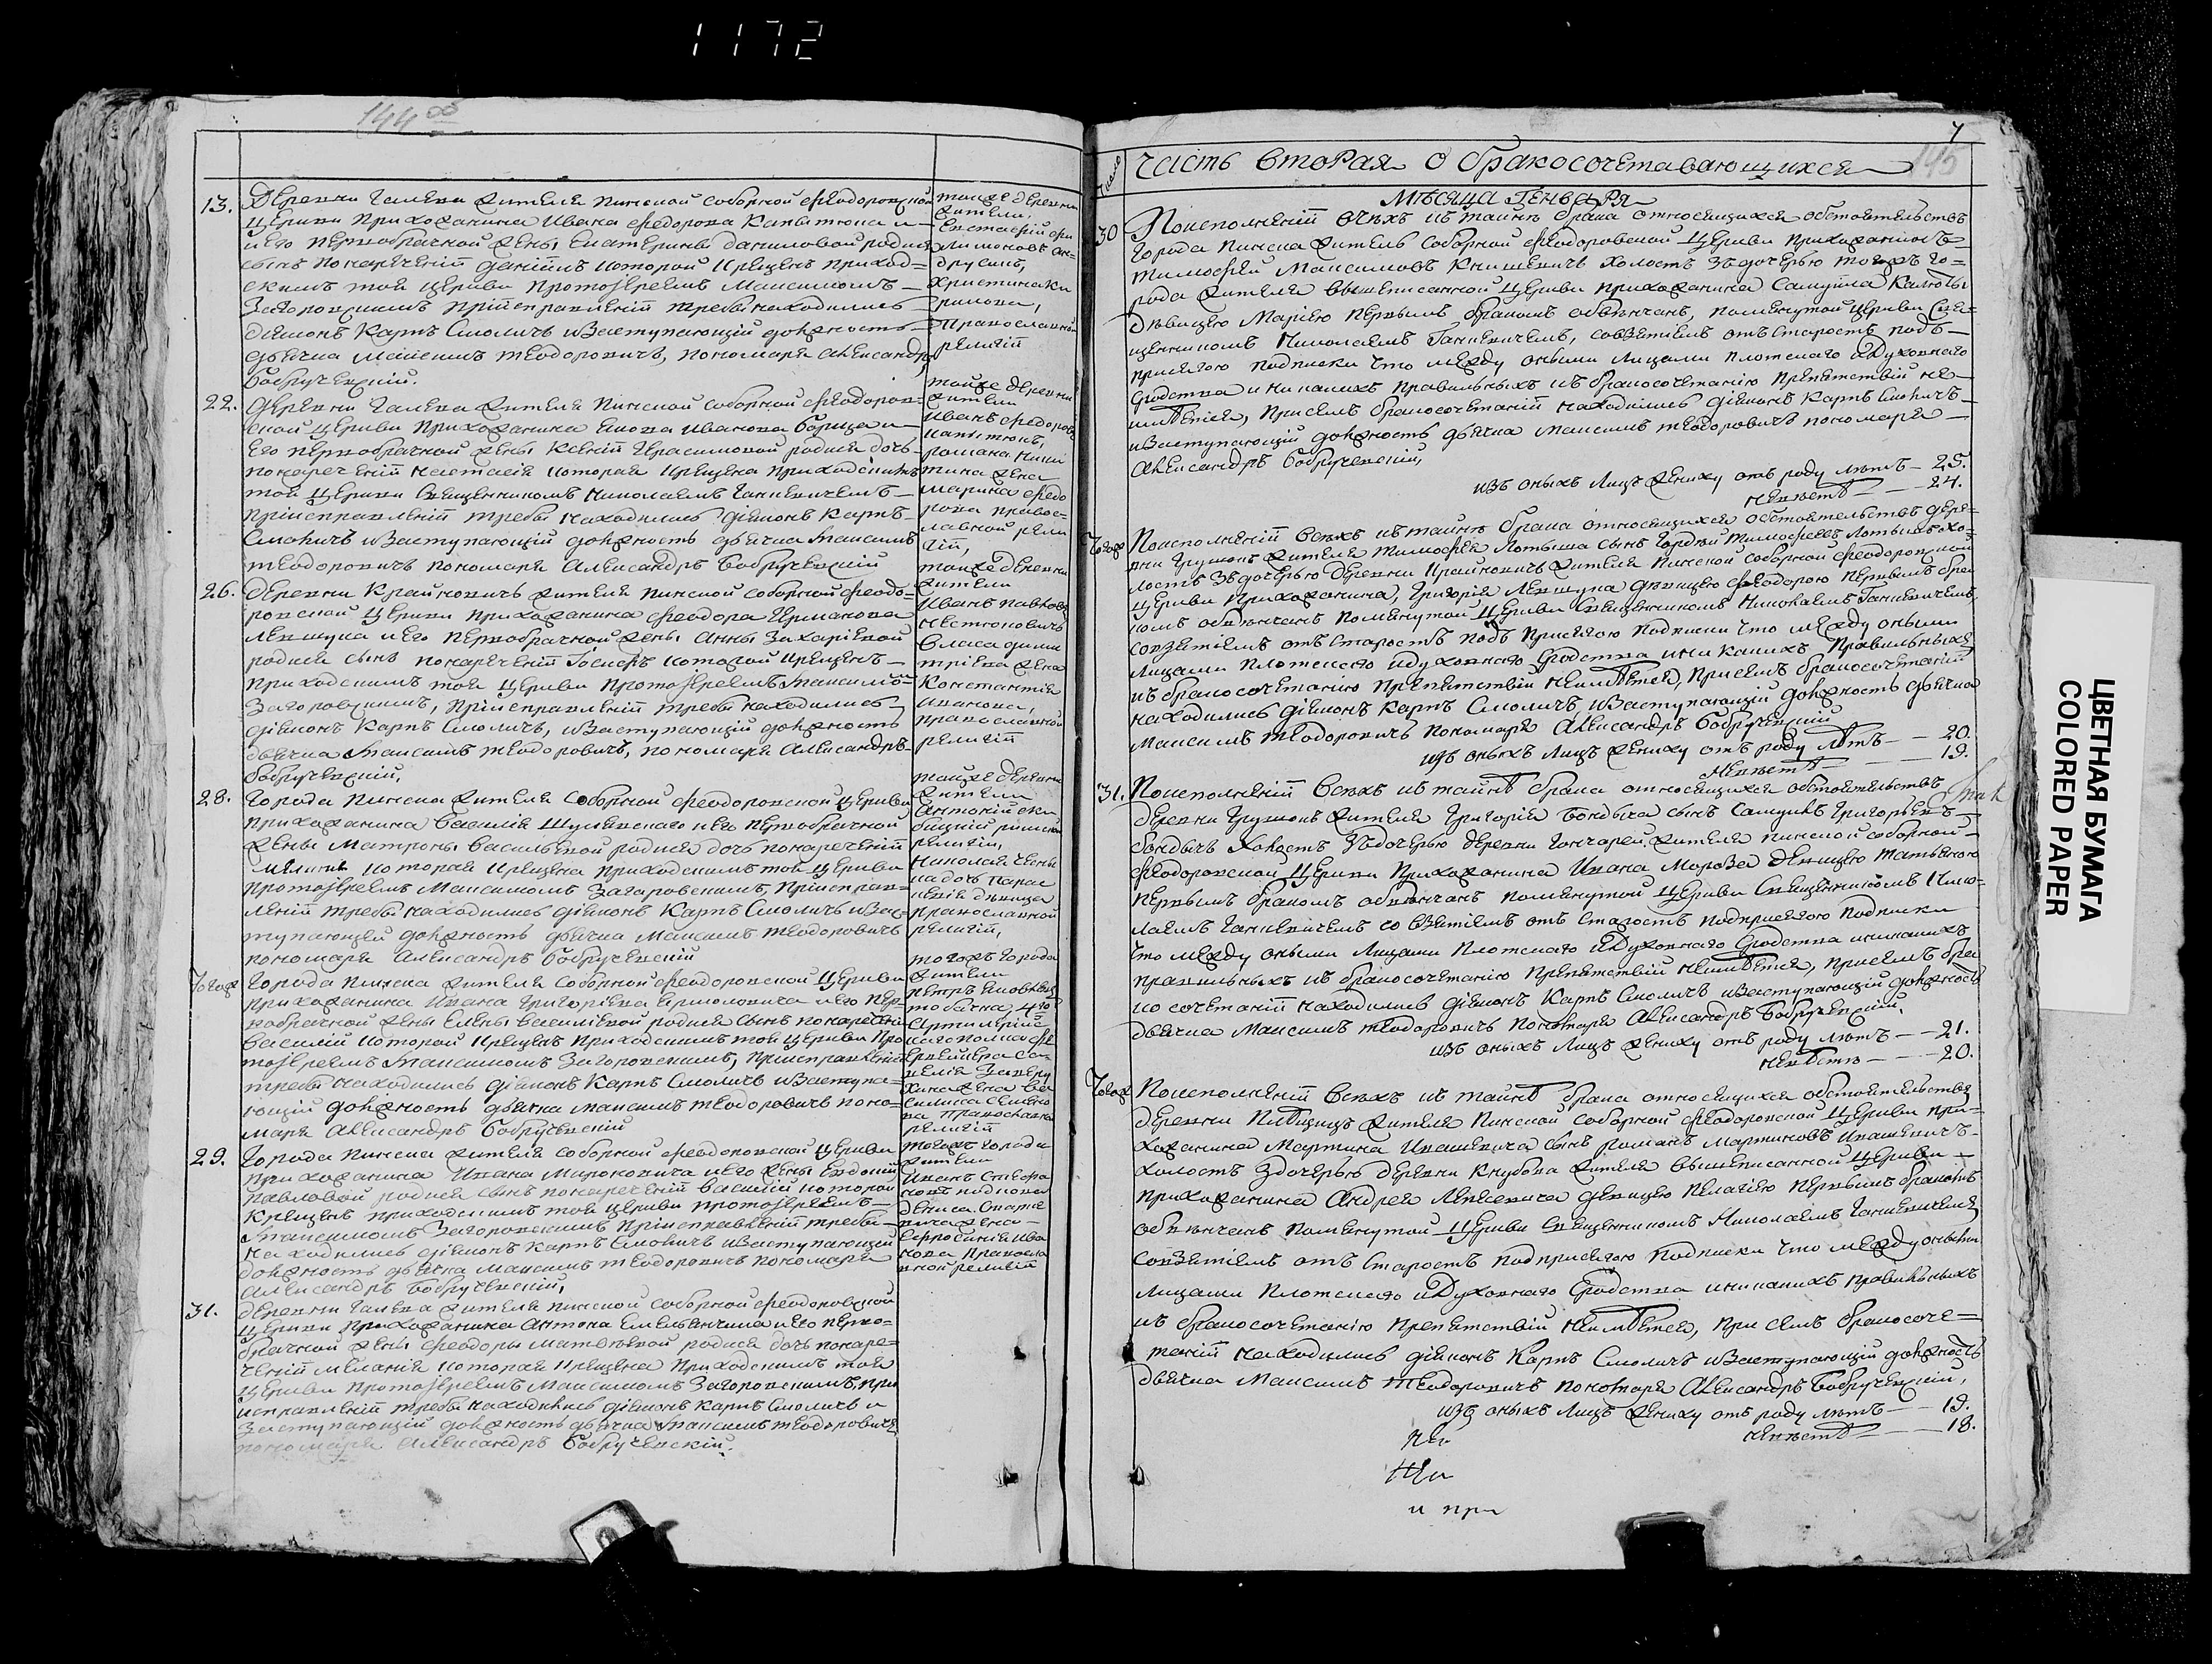 1172
144 об
13. Деревни Галева жителя Пинской соборной Феодоровской
церкви прихожанина Ивана Федорова Капитюка и
его первобрачной жены Екатерины Даниловой родися
сынъ по нареченіи Даніилъ которой крещенъ приход=
скимъ той церкви протоіереемъ Максимомъ
Загоровскимъ при исправленіи требы находились
діяконъ Карпъ Смоличъ и заступающій должность
дьячка Максимъ Теодоровичъ, пономарь Александръ
Бобручевскій.
22. Деревни Галева жителя Пинской соборной Феодоров=
ской церкви прихожанина Якова Иванова и
его первобрачной жены Ксеніи Герасимовой родися дочь
по нареченіи Настасія которая крещена приходскимъ
той церкви священникомъ Николаемъ Ганкевичемъ
при исправленіи требы находились діяконъ Карпъ
Смоличъ и заступающій должность дьячка Максимъ
Теодоровичъ пономарь Александръ Бобручевскій
26. Деревни Крайновичъ жителя Пинской соборной Феодо=
ровской церкви прихожанина Феодора Германова
Левщука и его первобрачной жены Анны Захаріевой
родися сынъ по нареченіи которой крещенъ
приходскимъ той церкви протоіереемъ Максимомъ
Загоровскимъ, при исправленіи требы находились
діяконъ Карпъ Смоличъ, и заступающій должность
дьячка Максимъ Теодоровичъ, пономарь Александръ
Бобручевскій,
28. Города Пинска жителя соборной Феодоровской церкви
прихожанина Василія и его первобрачной
жены Матроны Васильевой родися дочь по нареченіи
которая крещена приходскимъ той церкви
протоіереемъ Максимомъ Загоровскимъ, при исправ=
леніи требы находились діяконъ Карпъ Смоличъ и зас=
тупающій должность дьячка Максимъ Теодоровичъ
пономарь Александръ Бобручевскій
Тогож Города Пинска жителя соборной Феодоровской церкви
прихожанина Ивана Григоріева Ярмоловича и его пер=
вобрачной жены Елены Василіевой родися сынъ по нареченіи
Василій которой крещенъ приходскимъ той церкви про
тоіереемъ Максимомъ Загоровскимъ, при исправленіи
требы находились діяконъ Карпъ Смоличъ и заступа=
ющій должность дьячка Максимъ Теодоровичъ поно=
марь Александръ Бобручевскій
29. Города Пинска жителя соборной Феодоровской церкви
прихожанина Ивана Мироновича и его жены Евдокіи
Павловой родися сынъ по нареченіи Василій которой
крещенъ приходскимъ той церкви протоіереемъ
Максимомъ Загоровскимъ при исправленіи требы
находились діяконъ Карпъ Смоличъ и заступающій
должность дьячка Максимъ Теодоровичъ пономарь
Александръ Бобручевскій,
31. Деревни Галева жителя Пинской соборной Феодоровской
церкви прихожанина Антона Емельянчика и его перво=
брачной жены Феодоры Матвѣевой родися дочь по наре=
ченіи Меланія которая крещена приходскимъ той
церкви протоіереемъ Максимомъ Загоровскимъ, при
исправленіи требы находились діяконъ Карпъ Смоличъ и
заступающій должность дьячка Максимъ Теодоровичъ
пономарь Александръ Бобручевскій.
той же деревни
жители
Евстафій Фи
лимоновъ Ан=
друсикъ,
Христина Ки
рилова,
православной
религіи
той же деревни
жители
Иванъ Федоровъ
Капитюкъ,
Романа Ники
тина жена
Марина Федо
рова правос=
лавной рели
гіи,
той же деревни
жители
Иванъ Павловъ
Нестюковичъ
Власа Дими
тріева жена
Константія
Иванова,
православной
религіи
жители
Антоній
религіи,
Николая
на дочь Парас
кевія дѣвица
православной
религіи,
тогожъ города
жители
Петръ
4й
Артилерій
жена Ва
силиса
ва православной
религіи
тогожъ города
жители
Иванъ Стефа
новъ
Дениса
жена
Евфросинія Ива
нова правосла
вной религіи
7
145
Число
Часть вторая о бракосочетавающихся
Мѣсяца Генваря
30 По исполненіи всѣхъ къ тайнѣ брака относящихся обстоятельствъ
города Пинска житель соборной Феодоровской церкви прихожанинъ
Тимофей Максимовъ Кнышевичъ холостъ зъ дочерью тогожъ го=
рода жителя вышеписанной церкви прихожанина Самуила Калюты
дѣвицею Маріею первымъ бракомъ обвѣнчанъ, помянутой церкви свя=
щенникомъ Николаемъ Ганкевичемъ, со взятіемъ отъ старостъ подъ
присягою подписки что между оными лицами плотскаго и духовнаго
сродства и никакихъ правильныхъ къ бракосочетанію препятствій не
имѣется, при семъ бракосочетаніи находились діяконъ Карпъ Смоличъ
и заступающій должность дьячка Максимъ Теодоровичъ пономарь
Александръ Бобручевскій,
изъ оныхъ лицъ жениху отъ роду лѣтъ — 25.
невѣстѣ — — 24.
Тогож По исполненіи всѣхъ къ тайнѣ брака относящихся обстоятельствъ дере=
вни Грушокъ жителя Тимофея Лотыша сынъ Гордѣй Тимофеевъ Лотышъ хо=
лостъ зъ дочерью деревни Крайновичъ жителя Пинской соборной Феодоровской
церкви прихожанина, Григорія Левщука дѣвицею Феодорою первымъ бра
комъ обвѣнчанъ помянутой церкви священникомъ Николаемъ Ганкевичемъ,
со взятіемъ отъ старостъ подъ присягою подписки что между оными
лицами плотскаго и духовнаго сродства и никакихъ правильныхъ
къ бракосочетанію препятствіи неимѣется, при семъ бракосочетаніи
находились діяконъ Карпъ Смоличъ, и заступающій должность дьячка
Максимъ Теодоровичъ пономарь Александръ Бобручевскій
изъ оныхъ лицъ жениху отъ роду лѣтъ — — 20.
невѣстѣ — — 19.
31. По исполненіи всѣхъ къ тайнѣ брака относящихся обстоятельствъ
деревни Грушокъ жителя Григорія Бондыча сынъ Самуилъ Григорьевъ
Бондычъ холостъ зъ дочерью деревни Гончарей жителя Пинской соборной
Феодоровской церкви прихожанина Ивана Мороза девицею Татьяною
первымъ бракомъ обвѣнчанъ помянутой церкви священникомъ Нико=
лаемъ Ганкевичемъ со взятіемъ отъ старостъ под присягою подписки
что между оными лицами плотскаго и духовнаго сродства и никакихъ
правильныхъ къ бракосочетанію препятствій неимѣется, при семъ бра
косочетаніи находились діяконъ Карпъ Смоличъ и заступающій должность
дьячка Максимъ Теодоровичъ пономарь Александръ Бобручевскій,
изъ оныхъ лицъ жениху отъ роду лѣтъ — — 21.
невѣстѣ — — 20.
Тогож По исполненіи всѣхъ къ тайнѣ брака относящихся обстоятельствъ
деревни жителя Пинской соборной Феодоровской церкви при=
хожанина Мартина Ивашевича сынъ Романъ Мартиновъ Ивашевичъ
холостъ з дочерью деревни Кнубова жителя вышеписанной церкви
прихожанина Андрея Лексевича девицею Пелагіею первымъ бракомъ
обвѣнчанъ помянутой церкви священникомъ Николаемъ Ганкевичемъ
со взятіемъ отъ старостъ под присягою подписки что между оными
лицами плотскаго и духовнаго сродства и никакихъ правильныхъ
къ бракосочетанію препятствій неимѣется, при семъ бракосоче=
таніи находились діяконъ Карпъ Смоличъ и заступающій должность
дьячка Максимъ Теодоровичъ пономарь Александръ Бобручевскій,
изъ оныхъ лицъ жениху отъ роду лѣтъ — — 19.
невѣстѣ — — 18.
и при
ЦВЕТНАЯ БУМАГА
COLORED PAPER